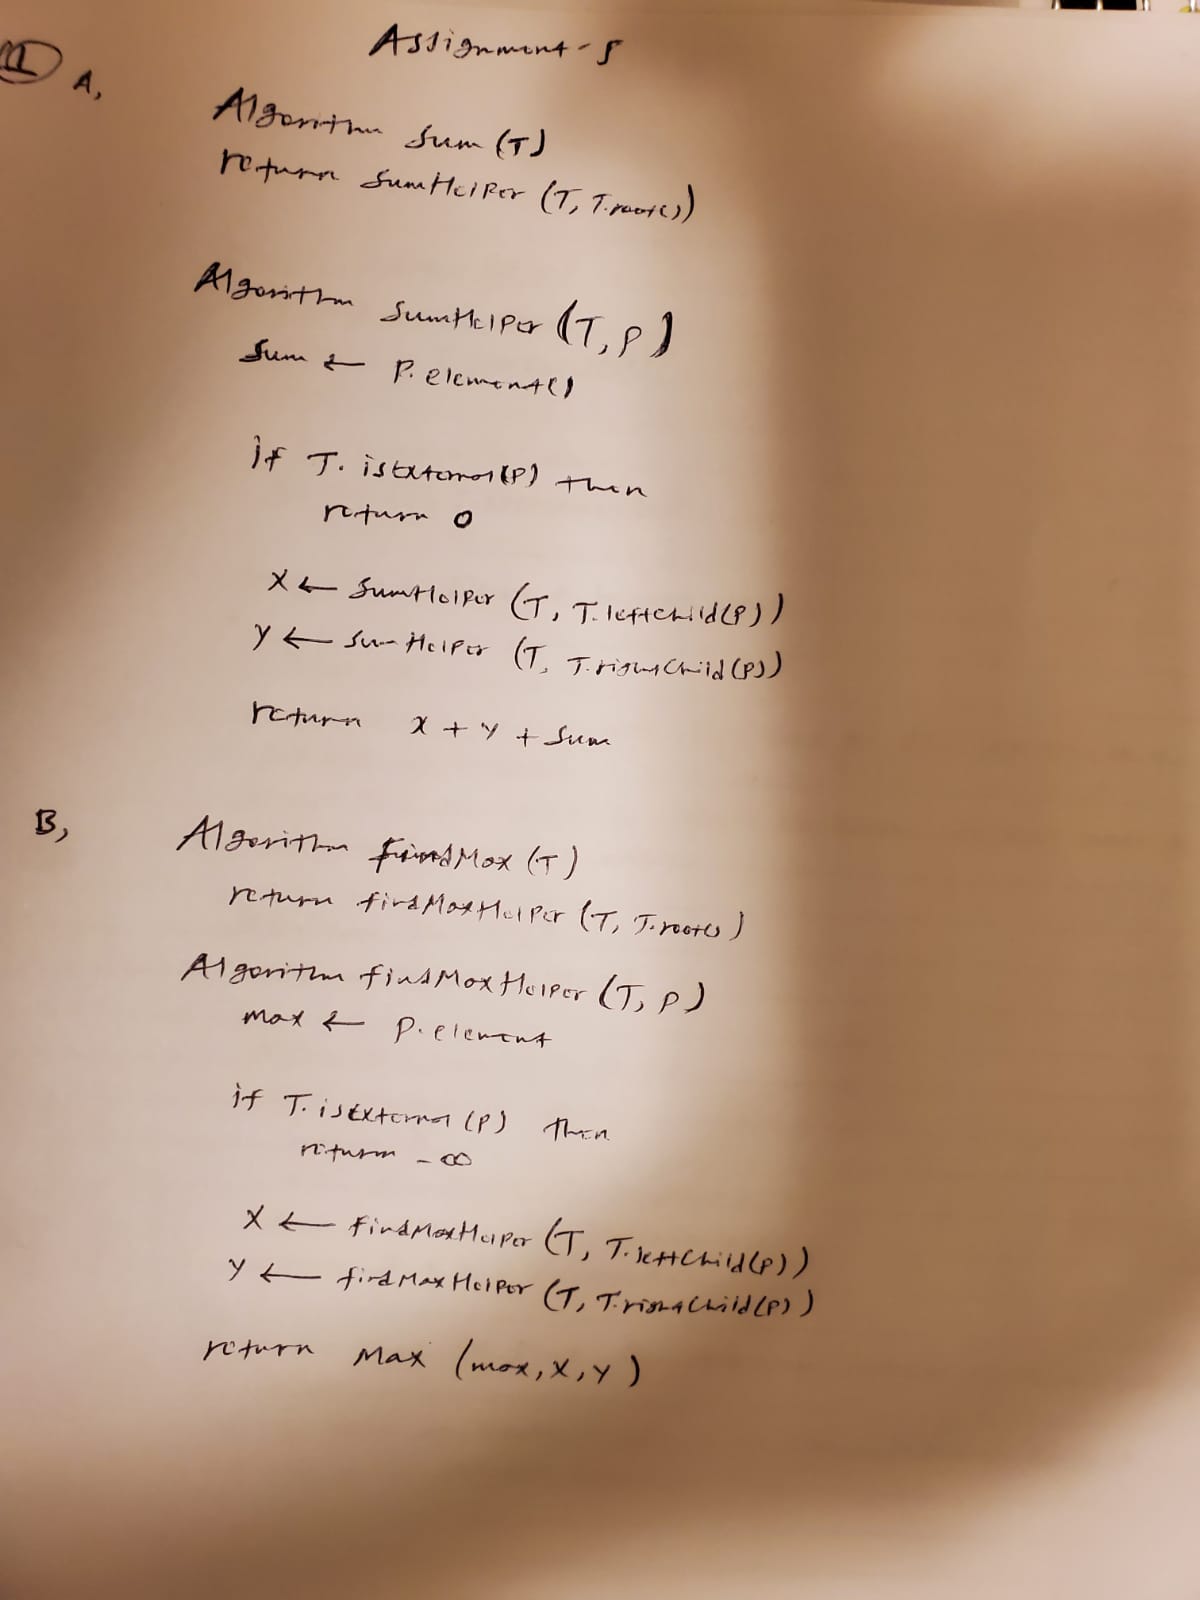 Assignment-5
1
A,
Algorithm Sum (T)
return SumHelper (T, T.root())
Algorithm SumHelper (T, P)
Sum ← P.element()
if T.isExternal(P) then
return 0
X ← SumHelper (T, T.leftChild(P))
Y ← SumHelper (T, T.rightChild(P))
return X + Y + Sum
B,
Algorithm findMax (T)
return findMaxHelper (T, T.root()
Algorithm findMaxHelper (T, P)
max ← P.element
if T.isExternal (P) then
return -∞
X ← findMaxHelper (T, T.leftChild(P))
Y ← findMaxHelper (T, T.rightChild(P))
return Max (max, X, Y)